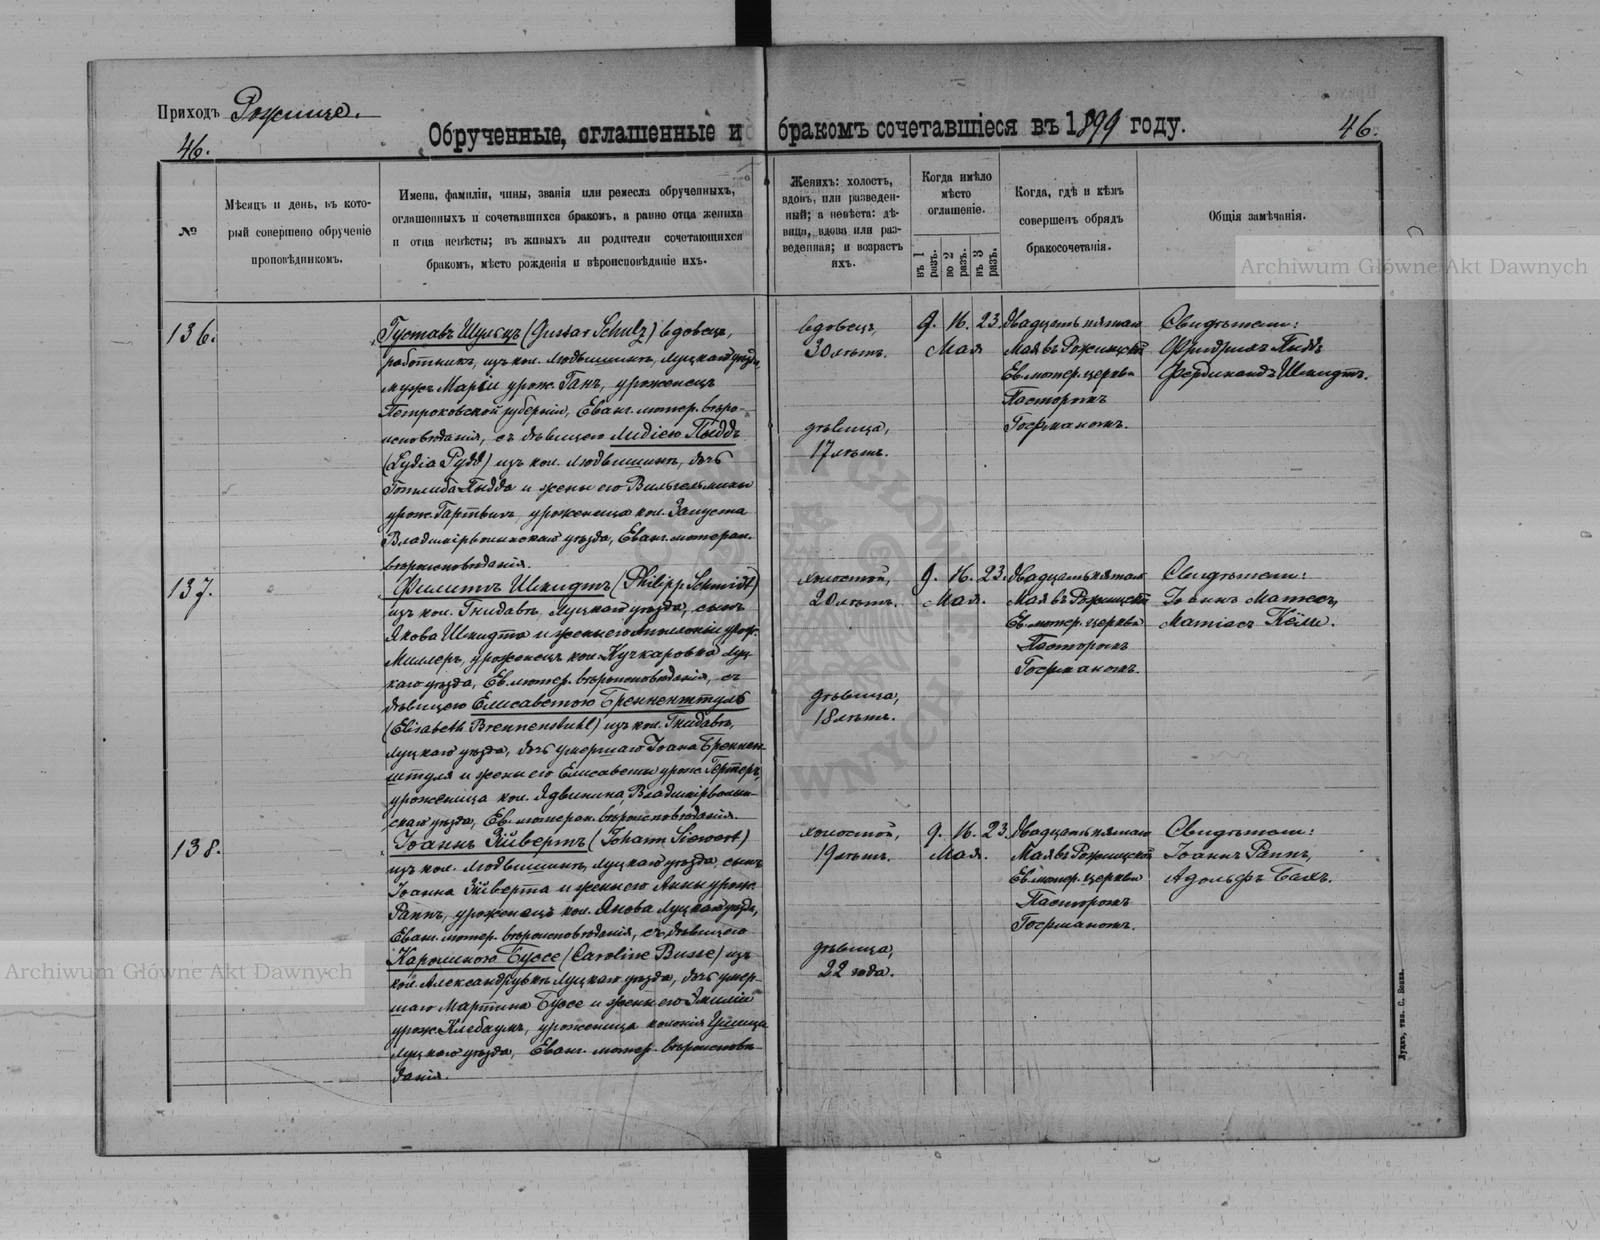 Приходъ Рожище.
46.
Обрученные, оглашенные и бракомъ сочетавшіеся въ 1899 году.
46.
№
Мѣсяцъ и день, въ кото-
рый совершено обрученіе
проповѣдникомъ.
Имена, фамиліи, чины, званія или ремесла обрученныхъ,
оглашенныхъ и сочетавшихся бракомъ, а равно отца жениха
и отца невѣсты; въ живыхъ ли родители сочетающихся
бракомъ, мѣсто рожденія и вѣроисповѣданіе ихъ.
Женихъ: холостъ,
вдовъ, или разведен-
ный; а невѣста: дѣ-
вица, вдова или раз-
веденная; и возрастъ
ихъ.
Когда имѣло
мѣсто
оглашеніе.
въ 1 разъ.
во 2 разъ.
въ 3 разъ.
Когда, гдѣ и кѣмъ
совершенъ обрядъ
бракосочетанія.
Общія замѣчанія.
136.
Густавъ Шульцъ (Gustav Schulz) вдовецъ,
работникъ, изъ кол. Людвишинъ, Луцкаго уѣзда,
мужъ Маріи урож. Ганъ, уроженецъ
Петроковской губерніи, Еванг. лютер. вѣро-
исповѣданія, съ дѣвицею Лидіею Пыддъ
(Lydia Pydd) изъ кол. Людвишинъ, дочь
Готлиба Пыдда и жены его Вильгельмины
урож. Гартвихъ, уроженица кол. Запуста
Владимірволынскаго уѣзда, Еванг. лютеран.
вѣроисповѣданія.
вдовецъ,
30 лѣтъ.
дѣвица,
17 лѣтъ.
9. 16. 23.
Мая
Двадцать пятаго
Мая въ Рожищской
Ев. лютер. церкви
Пасторомъ
Госрманомъ.
Свидѣтели:
Фридрихъ Пыддъ
Фердинандъ Шмидтъ.
137.
Филиппъ Шмидтъ (Philipp Schmidt)
изъ кол. Гнидавъ, Луцкаго уѣзда, сынъ
Якова Шмидта и жены его Аполоніи урож.
Миллеръ, уроженецъ кол. Кучкаровка Луц-
каго уѣзда, Ев. лютер. вѣроисповѣданія, съ
дѣвицею Елисаветою Бренненштуль
(Elisabeth Brennenstuhl) изъ кол. Гнидавъ,
Луцкаго уѣзда, дочь умершаго Іоана Бреннен-
штуля и жены его Елисаветы урож. Гертеръ,
уроженица кол. Ядвинина, Владимірволын-
скаго уѣзда, Ев. лютеран. вѣроисповѣданія.
холостой,
20 лѣтъ.
дѣвица,
18 лѣтъ.
9. 16. 23.
Мая.
Двадцать пятаго
Мая въ Рожищской
Ев. лютер. церкви
Пасторомъ
Госрманомъ.
Свидѣтели:
Іоаннъ Матесъ,
Матіасъ Кельм.
138.
Іоаннъ Зивертъ (Johann Siewert)
изъ кол. Людвишинъ, Луцкаго уѣзда, сынъ
Іоанна Зиверта и жены его Анны урож.
Раппъ, уроженецъ кол. Янова Луцкаго уѣзда,
Еванг. лютер. вѣроисповѣданія, съ дѣвицею
Каролиною Буссе (Caroline Busse) изъ
кол. Александрувкъ Луцкаго уѣзда, дочь умер-
шаго Мартина Буссе и жены его Эмиліи
урож. Клебаумъ, уроженица колоніи
Луцкаго уѣзда, Еванг. лютер. вѣроисповѣ-
данія.
холостой,
19 лѣтъ.
дѣвица,
22 года.
9. 16. 23.
Мая.
Двадцать пятаго
Мая въ Рожищской
Ев. лютер. церкви
Пасторомъ
Госрманомъ.
Свидѣтели:
Іоаннъ Раппъ,
Адольфъ Бахъ.
Archiwum Główne Akt Dawnych
Archiwum Główne Akt Dawnych